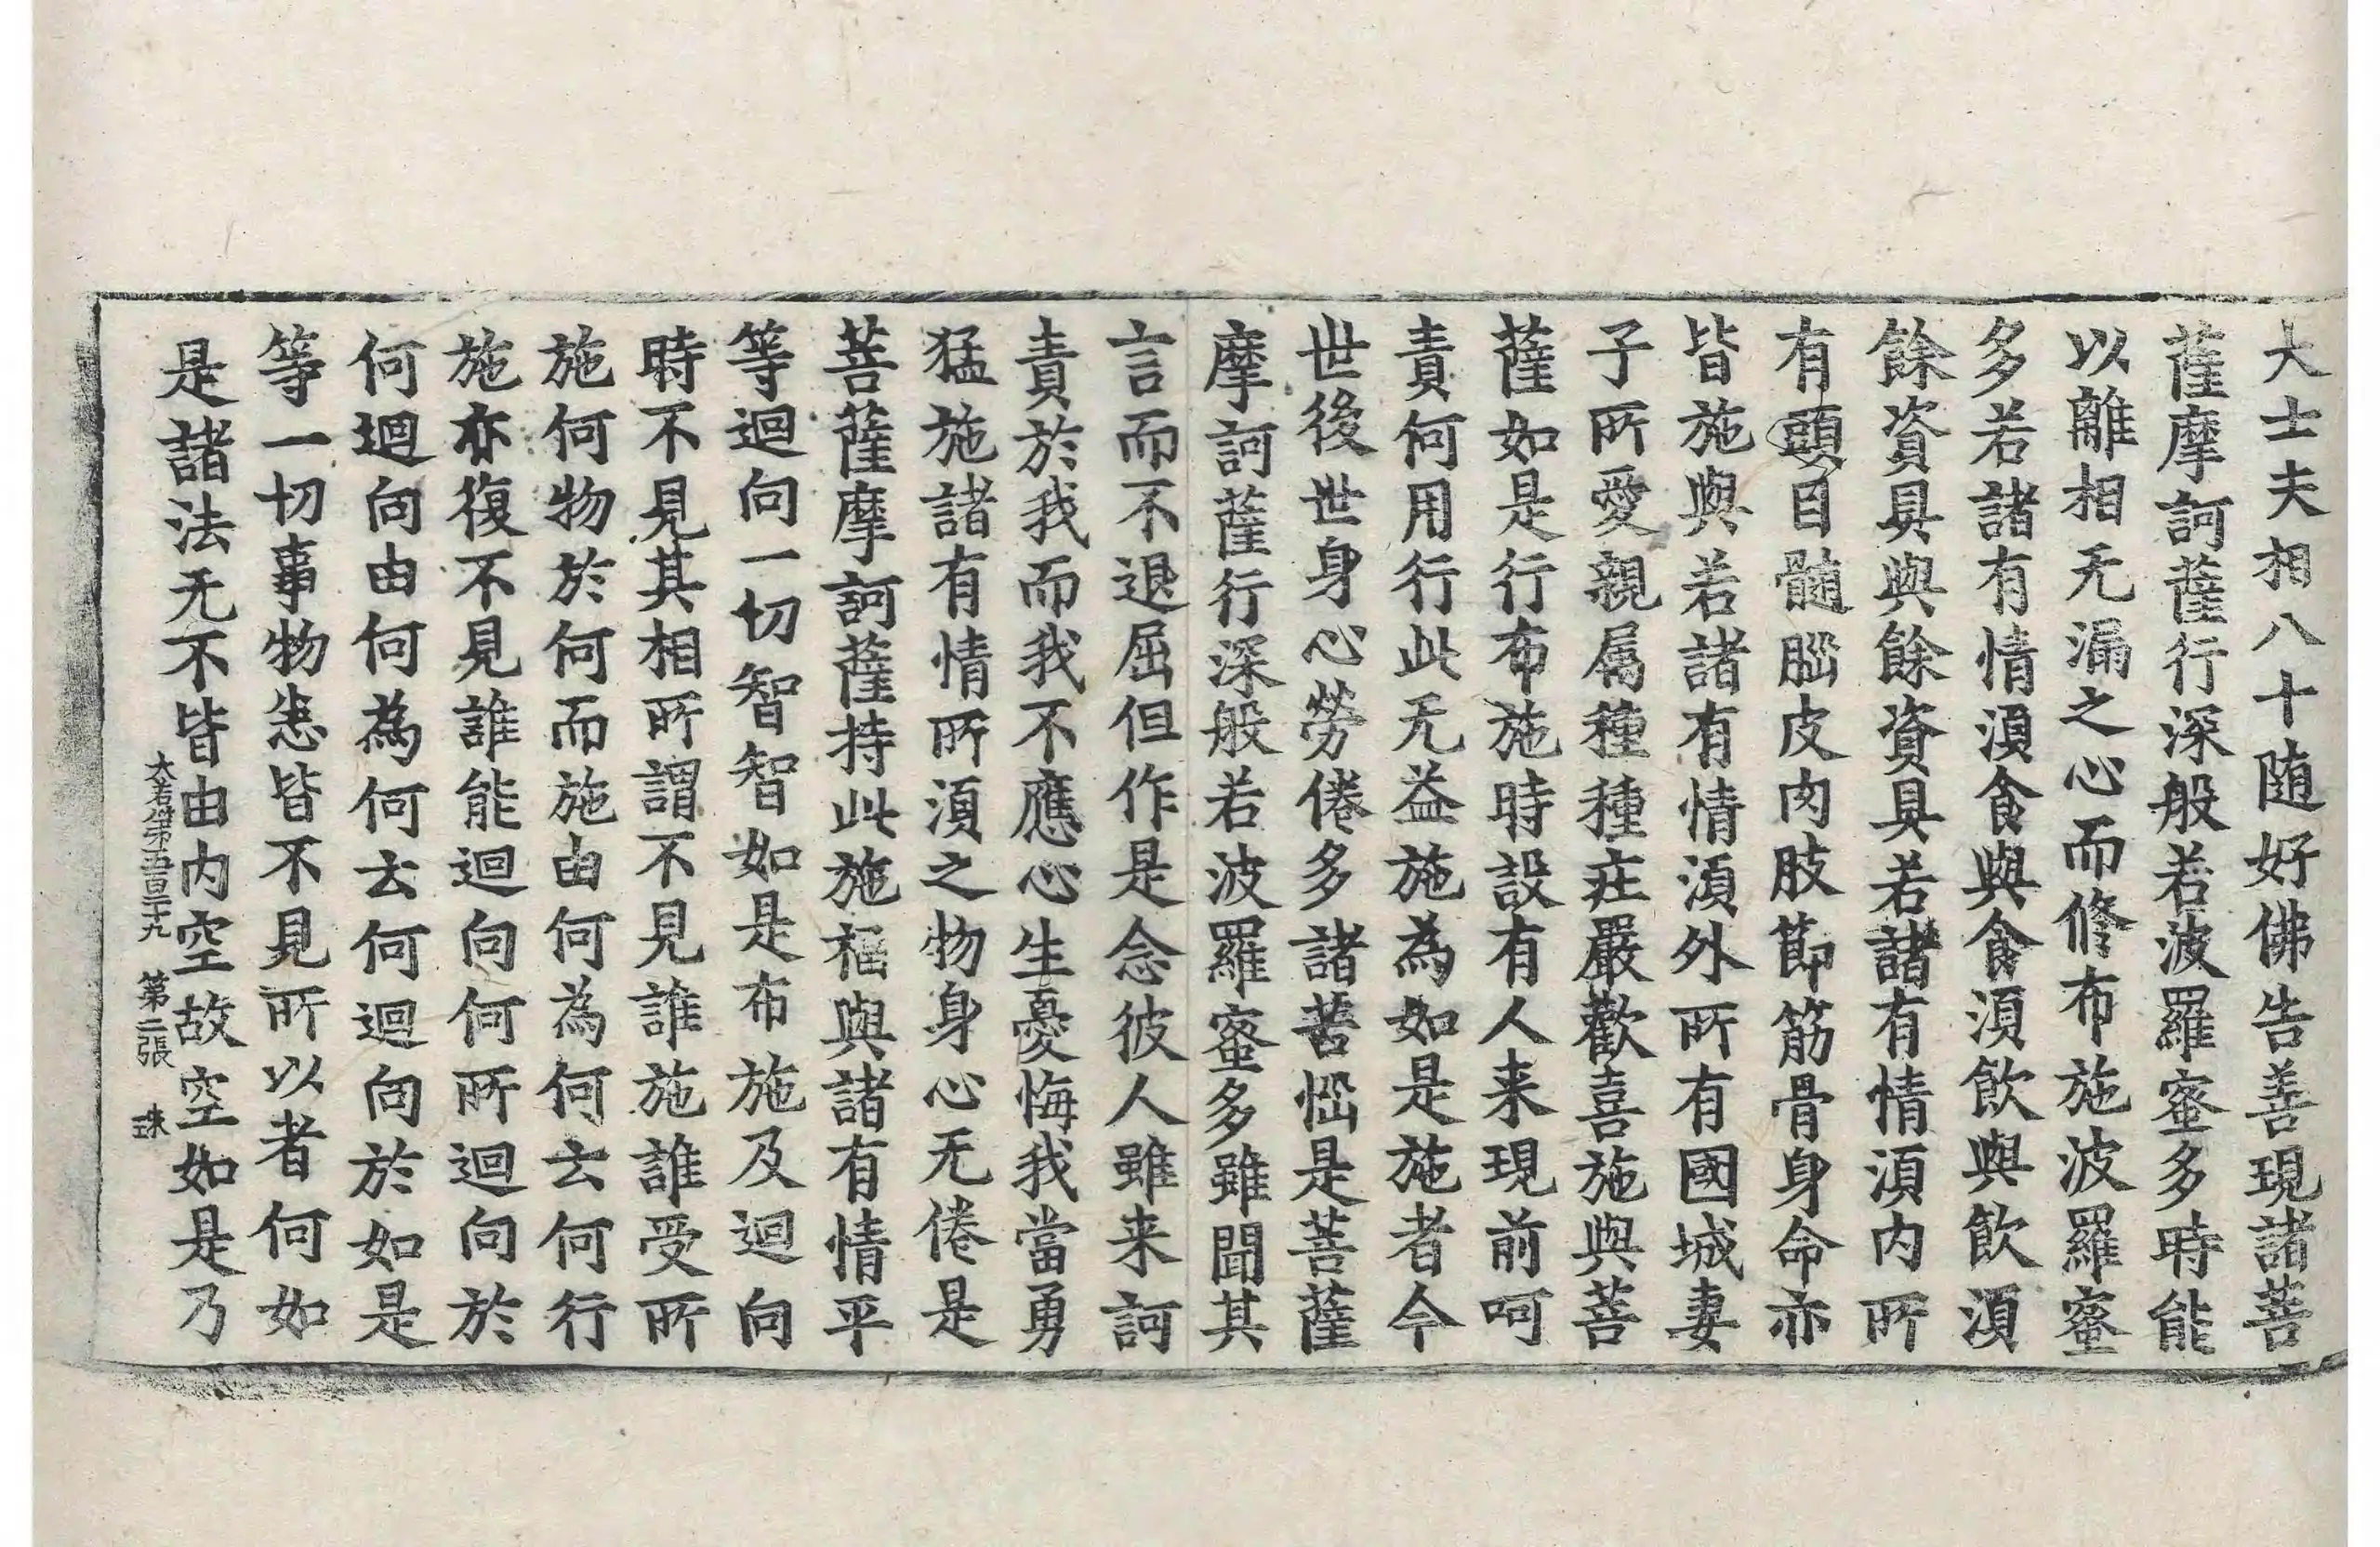 大士夫相八十随好佛告善現諸菩
薩摩訶薩行深般若波羅蜜多時能
以離相无漏之心而修布施波羅蜜
多若諸有情湏食與食湏飲與飲湏
餘資具與餘資具若諸有情湏内所
有頭目髄腦皮肉肢節筋骨身命亦
皆施與若諸有情湏外所有國城妻
子所愛親属種種庄嚴歡喜施與菩
薩如是行布施時設有人来現前呵
責何用行此无益施為如是施者今
世後世身心勞倦多諸苦惱是菩薩
摩訶薩行深般若波羅蜜多雖聞其
言而不退屈但作是念彼人雖来訶
責於我而我不應心生憂悔我當勇
猛施諸有情所湏之物身心无倦是
菩薩摩訶薩持此施福與諸有情平
等迴向一切智智如是布施及迴向
時不見其相所謂不見誰施誰受所
施何物於何而施由何為何云何行
施亦復不見誰能迴向何所迴向於
何迴向由何為何云何迴向於如是
等一切事物悉皆不見所以者何如
是諸法无不皆由内空故空如是乃
大若經第五百二十九 第二張 珠